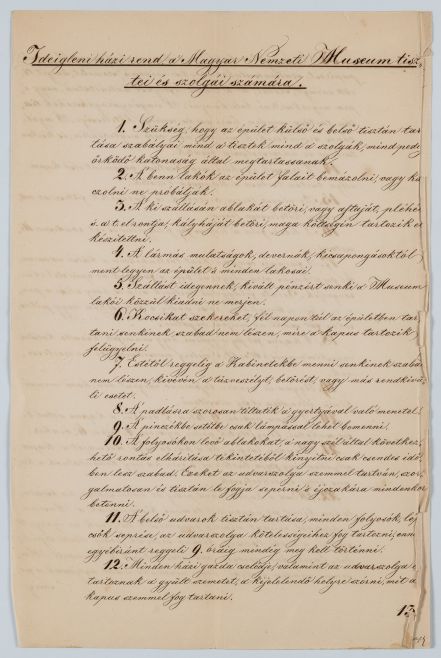 Ideigleni házi rend a' Magyar Nemzeti Museum tisz-
tei és szolgái számára.
1. Szükség, hogy az épület külső és belső tisztán tar-
tása szabályai mind a tisztek mind a szolgák, mind pedig
őrködő katonaság által megtartassanak.
2. A benn lakók az épület falait bemázolni, vagy ka
czolni ne próbálják.
3. A ki szállásán ablakát betöri, vagy ajtaját,
s. a t. elrontja, kályháját betöri, maga költségén tartozik el
készíttetni.
4. A lármás mulatságok, kicsapongásoktól
ment legyen az épület 's minden lakosai.
5. Szállást idegennek, kivált pénzért senki a Museum
lakói közzül kiadni ne merjen.
6. Kocsikat szekereket, fél napon túl az épületben tar-
tani senkinek szabad nem lészen, mire a kapus tartozik
felügyelni.
7. Estétől reggelig a Kabinetekbe menni senkinek szaba
nem lészen, kivévén a tűzveszélyt, betörést, vagy más rendkivü-
li esetet.
8. A padlásra szorosan tiltatik a gyertyával való menetel.
9. A pinczékbe setétbe csak lámpással lehet bemenni.
10. A folyosókon levő ablakokat, a nagy szél által következ-
hető rontás elhárítása tekintetéből kinyitni csak csendes idő-
ben lesz szabad. Ezeket az udvarszolga szemmel tartván, szor-
galmatosan és tisztán le fogja seperni 's éjszakára mindenkor
betenni.
11. A belső udvarok tisztán tartása, minden folyosók, lép
csők seprése, az udvarszolga kötelességeihez fog tartozni, enn
egyébiránt reggeli 9. óráig mindég meg kell történni.
12. Minden házi gazda cselédje, valamint az udvarszolga i
tartoznak a gyűlt szemetet, a kijelelendő helyre szórni, mit a
kapus szemmel fog tartani.
13.